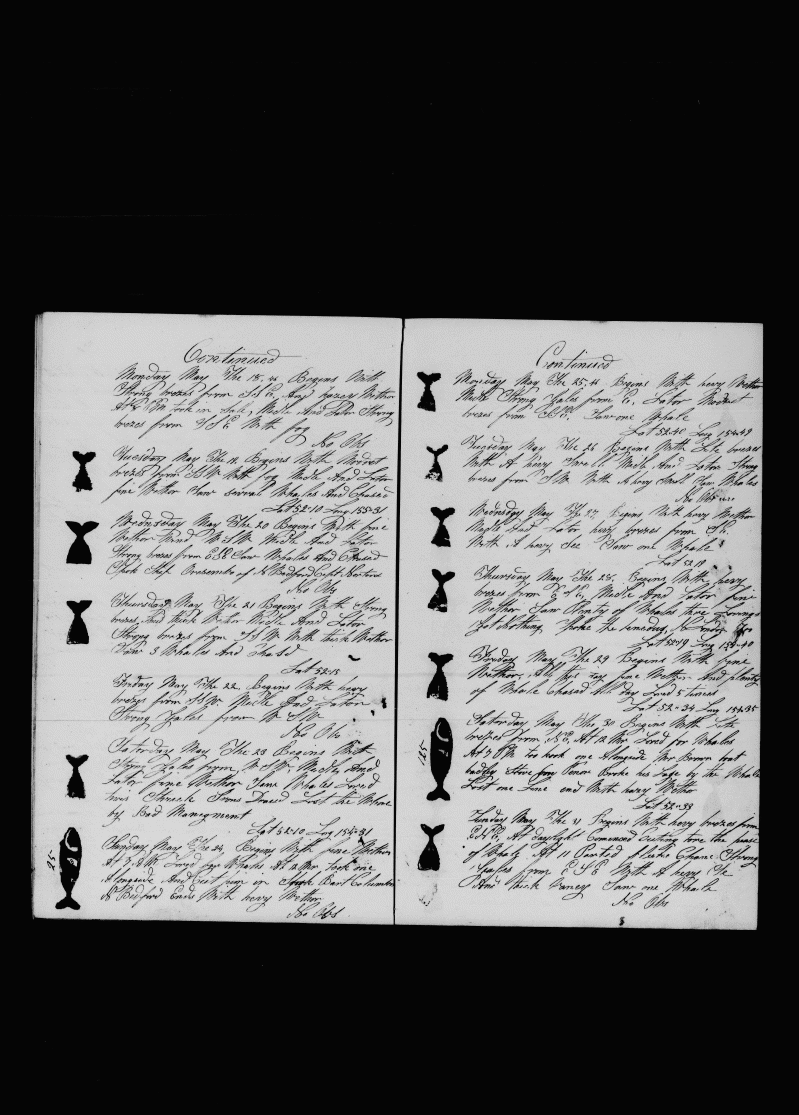 Continued
Monday May The 18, Begins With
Strong brezes from S S E, And Hazey Wether
At 8 PM took in Sale, Midle And Lator Strong
brezes from S S E With fog
No Obs
Tuesday May The 19, Begins With Modret
brezes from S S W With fog Midle And Lator
fine Wether Saw several Whales And Chased
Lat 52-10 Long 155-31
Wednesday May The 20 Begins With fine
Wether Wind W S W Midle And Lator
Strong brezes from Saw Whales And Chased
Spok Ship of N Bedford Capt
No Obs
Thursday May The 21 Begins With Strong
brezes, And thick Wether Midle And Lator
Strong brezes from S S W With thick Wether
Saw 3 Whales And Chased
Lat 52-15
Friday May The 22, Begins With hevy
brezes from S S W Midle And Lator
Strong Gales from W S W
No Obs
Saturday May The 23 Begins With
Strong Gales from W S W, Midle And
Lator fine Wether Saw Whales Lowed
twis Struck Some Drawed Lost the Whale
by Bad Manegment
Lat 52-10 Long 154-31
Sunday May The 24, Begins With fine Wether
At 9 AM Lowed for Whales At 12 Mr took one
Alongside And Cut him in Spok Bark Columbus
N Bedford Ends With hevy Wether
No Obs
25
Continued
Monday May The 25, Begins With hevy Wether
Midle Strong Gales from E, Lator Modret
brezes from Saw one Whale
Lat 52-40 Long 154-49
Tuesday May The 26 Begins With Lite brezes
With A hevy Swell Midle And Lator Strong
brezes from S W With A hevy Swell Saw Whales
No Obs
Wednesday May The 27, Begins With hevy Wether
Midle And Lator hevy brezes from
With A hevy Sea Saw one Whale
Lat 52-11
Thursday May The 28, Begins With hevy
brezes from Midle And Lator fine
Wether Saw Plenty of Whales three Lowings
Got Nothing, Spoke the
Lat 52-19 Long 154-40
Friday May The 29 Begins With fine
Wether, All this day fine Wether And plenty
of Whale Chased All day Lowd 5 times
Lat 52-34 Long 154-35
Saturday May The 30 Begins With Lite
brezes from At 12 Mr Lowd for Whales
At 3 PM too took one Alongside Mr Brown boat
badley Stove Broke his by the Whale
Lost one Line ends With hevy Wether
Lat 52-33
Sunday May The 31 Begins With hevy brezes from
At daylight Comenced Cuting tore the
of Whale At 11 Parted Chane Strong
Gales from E S E With A hevy Sea
And thick Saw one Whale
No Obs
125